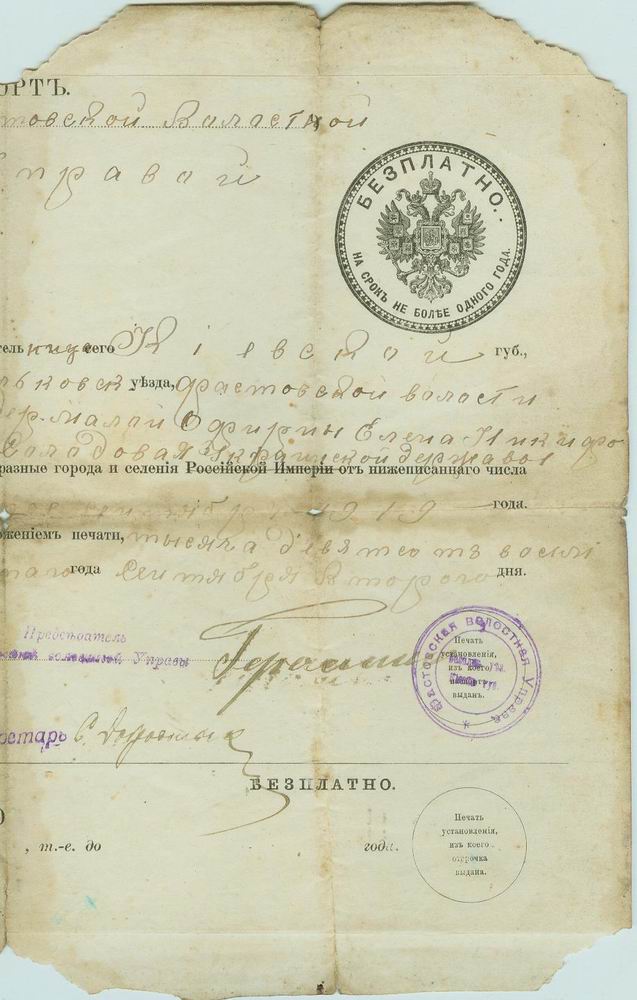 ОРТЪ.
товской Валастной
Управой
БЕЗПЛАТНО.
НА СРОКЪ НЕ БОЛѢЕ ОДНОГО ГОДА.
тель его Кіевской губ.,
льковск уѣзда, Фастовской валасти
дер. Малай Офирны Елена Никифо
Саладовая Украинской державы
разные города и селенія Россійской Имперіи отъ нижеписаннаго числа
Сентября 1919 года.
оженіемъ печати, тысяча девятсотъ восім
таго года Сентября Второго дня.
Предсѣдатель
Управы
Печать
установленія,
изъ коего
выданъ.
Фастовская Волостная Управа
БЕЗПЛАТНО.
, т.-е. до года.
Печать
установленія,
изъ коего
отсрочка
выдана.